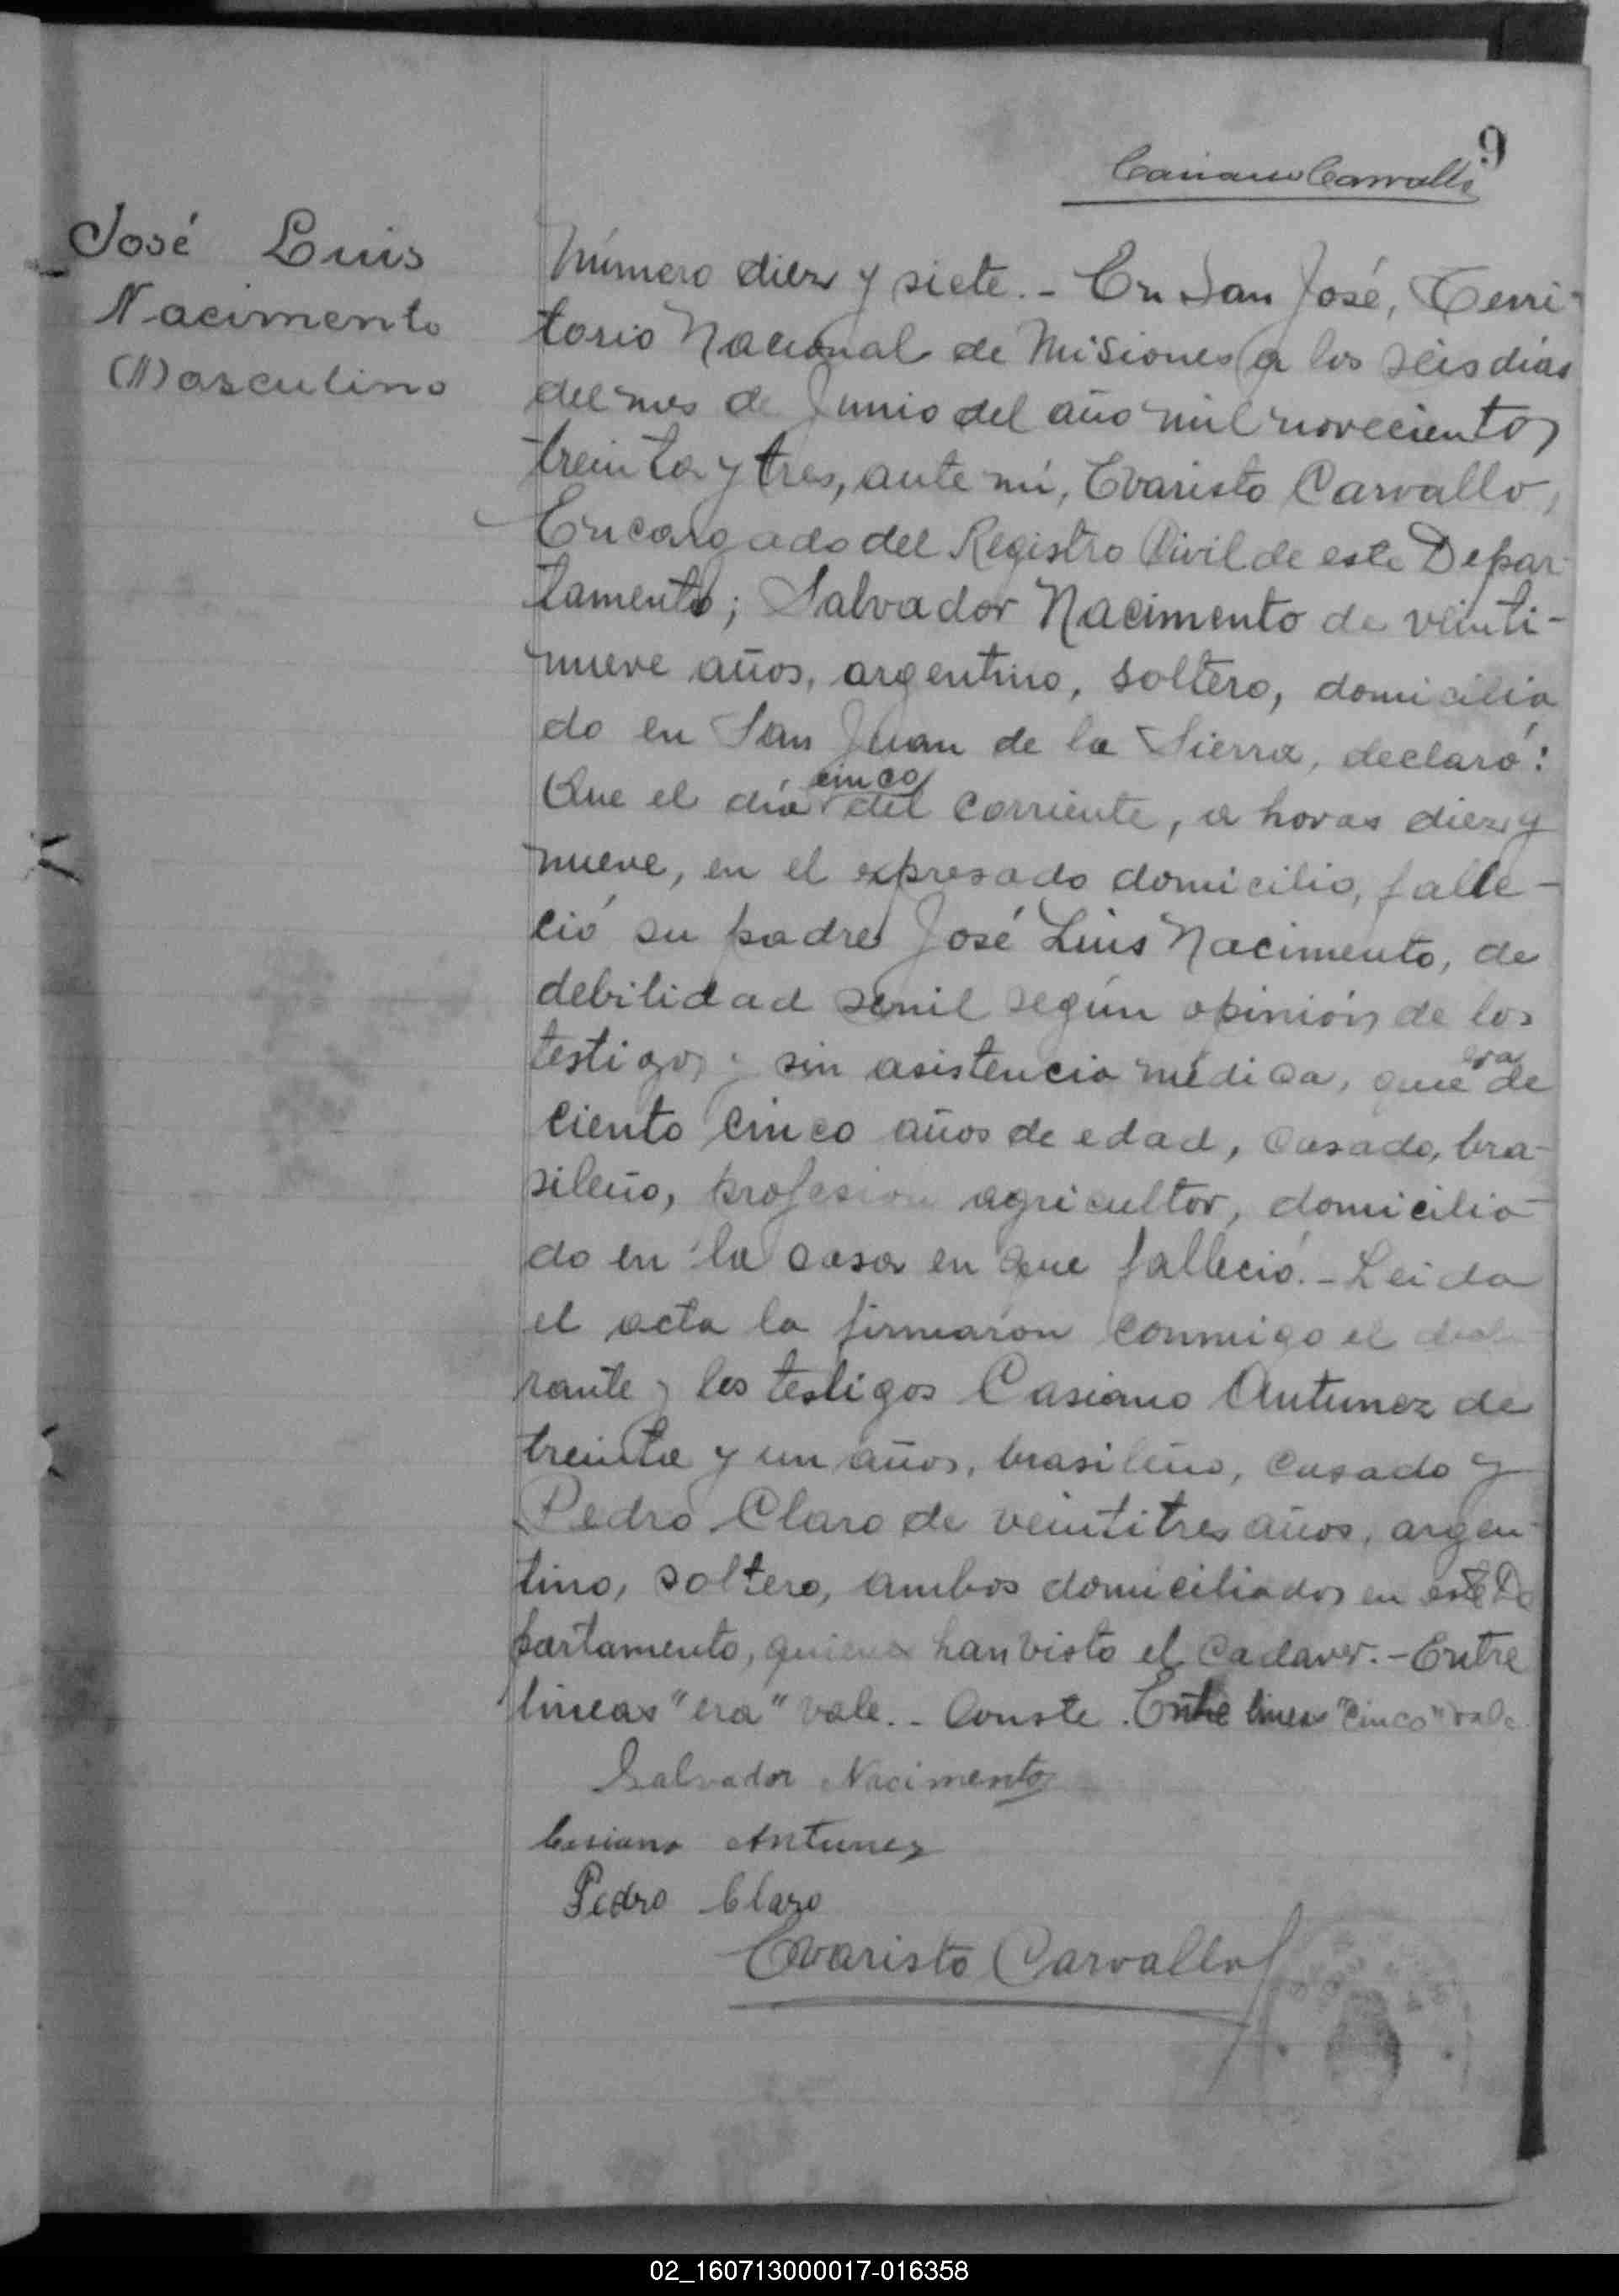 9
José Luis
Nacimento
Masculino
Número diez y siete.- En San José, Terri-
torio Nacional de Misiones a los seis días
del mes de Junio del año mil novecientos
treinta y tres, ante mí, Evaristo Carvallo,
Encargado del Registro Civil de este Depar-
tamento; Salvador Nacimento de veinti-
nueve años, argentino, soltero, domicilia
do en San Juan de la Sierra, declaró:
cinco
Que el día del corriente, a horas diez y
nueve, en el expresado domicilio, falle-
ció su padre José Luis Nacimento, de
debilidad senil según opinión de los
testigos y sin asistencia médica, que
era
de
ciento cinco años de edad, casado, bra-
sileño, profesion agricultor, domicilia-
do en la casa en que falleció.- Leida
el acta la firmaron conmigo el decla-
rante y los testigos Casiano Antunez de
treinta y un años, brasileño, casado y
Pedro Claro de veintitres años, argen-
tino, soltero, ambos domiciliados en este De
partamento, quienes han visto el cadaver.- Entre
lineas "era" vale.- Conste. Entre lineas "cinco" vale.
Salvador Nacimento
Casiano Antunez
Pedro Claro
Evaristo Carvallo
02_160713000017-016358